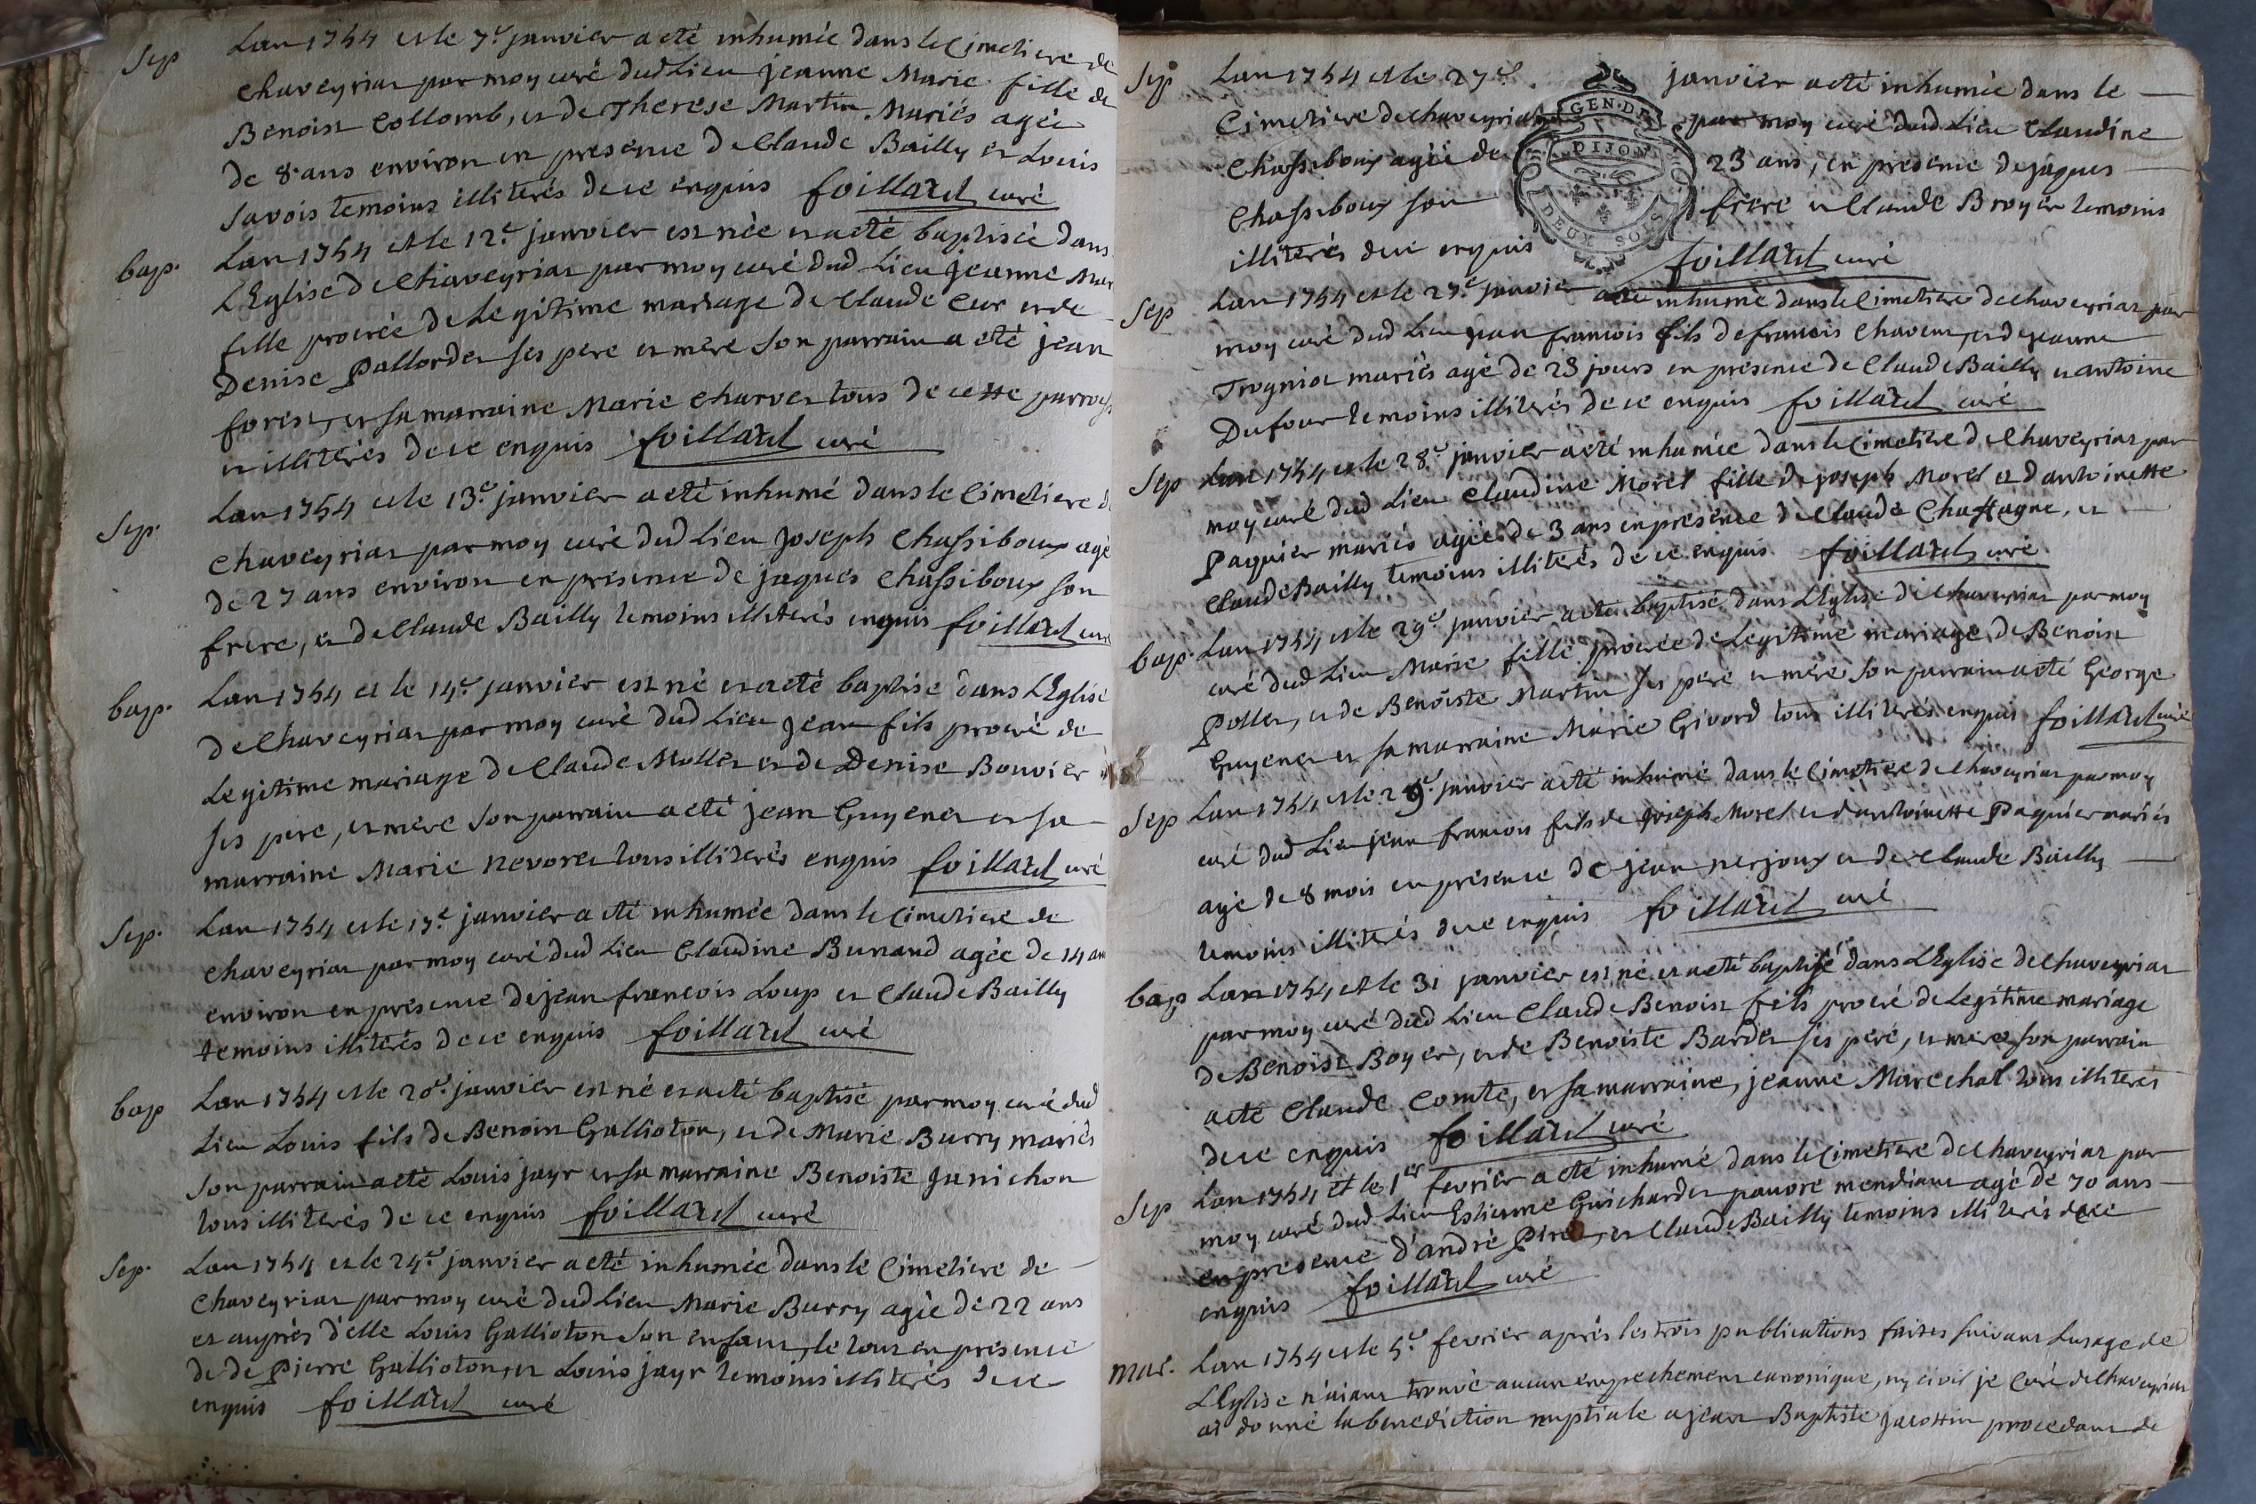 Sep Lan 1754 et le 7e janvier a eté inhumée dans le Cimetiere de
chaveyriat par moy curé dud Lieu jeanne Marie fille de
Benoist Collomb, et de Therese Martin Mariés agée
de 8 ans environ en presence de Claude Bailly et Louis
Savois temoins illiterés de ce enquis foillard curé
bap. Lan 1754 et le 12e janvier est née et a eté baptisée dans
L'Eglise de Chaveyriat par moy curé dud Lieu jeanne Mar
fille procrée de Legitime mariage de Claude Cur et de
Denise Pallordet ses pere et mere son parrain a eté jean
forest, et sa marraine Marie Charvet tous de cette parroiss
et illiterés de ce enquis foillard curé
Sep. Lan 1754 et le 13e janvier a eté inhumé dans le Cimetiere de
Chaveyriat par moy curé dud Lieu Joseph Chassiboux agé
de 27 ans environ en presence de jaques Chassiboux son
frere, et de Claude Bailly temoins illiterés enquis foillard curé
bap. Lan 1754 et le 14e janvier est né et a eté baptisé dans L'Eglise
de Chaveyriat par moy curé dud Lieu Jean fils procré de
Legitime mariage de Claude Mollet et de Denise Bouvier
ses pere, et mere son parrain a eté jean Guyenet et sa
marraine Marie Nevoret tous illiterés enquis foillard curé
Sep. Lan 1754 et le 17e janvier a eté inhumée dans le Cimetiere de
chaveyriat par moy curé dud Lieu Claudine Bunand agée de 14 ans
environ en presence de jean francois Loup et Claude Bailly
temoins illiterés de ce enquis foillard curé
bap Lan 1754 et le 20e janvier est né et a eté baptisé par moy curé dud
Lieu Louis fils de Benoist Gallioton, et de Marie Burry mariés
son parrain a eté Louis jayr et sa marraine Benoiste Janichon
tous illiterés de ce enquis foillard curé
Sep. Lan 1754 et le 24e janvier a eté inhumée dans le Cimetiere de
Chaveyriat par moy curé dud Lieu Marie Burry agée de 22 ans
et auprés d'elle Louis Gallioton son enfant, le tout en presence
de de Pierre Gallioton, et Louis jayr temoins illiterés de ce
enquis foillard curé
Sep Lan 1754 et le 27e janvier a eté inhumée dans le
Cimetiere de Chaveyriat par moy curé dud Lieu Claudine
Chassiboux agée de 23 ans, en presence de jaques
Chassiboux son frere et Claude Broyer temoins
illiterés de ce enquis foillard curé
GEN. D
DIJON
DEUX SOLS
Sep Lan 1754 et le 27e janvier a eté inhumé dans le Cimetiere de chaveyriat par
moy curé dud Lieu jean francois fils de francois Chavent, et de jeanne
Trogniot mariés agé de 23 jours en presence de Claude Bailly et antoine
Dufour temoins illiterés de ce enquis foillard curé
Sep Lan 1754 et le 28e janvier a eté inhumée dans le Cimetiere de Chaveyriat par
moy curé dud Lieu Claudine Morel fille de joseph Morel et d antoinette
Paquier mariés agée de 3 ans en presence de Claude Chattagne, et
Claude Bailly temoins illiterés de ce enquis foillard curé
bap. Lan 1754 et le 29e janvier a eté baptisé dans L'Eglise de Chaveyriat par moy
curé dud Lieu Marie fille procrée de Legitime mariage de Benoist
Pollet, et de Benoiste Martin ses pere et mere son parrain a eté George
Guyenet et sa marraine Marie Givord tous illiterés enquis foillard curé
Sep Lan 1754 et le 29e janvier a eté inhumé dans le Cimetiere de Chaveyriat par moy
curé dud Lieu jean francois fils de joseph Morel et d antoinette Paquier mariés
agé de 8 mois en presence de jean nerjoux et de Claude Bailly
temoins illiterés de ce enquis foillard curé
bap Lan 1754 et le 31 janvier est né et a eté baptisé dans L'Eglise de Chaveyriat
par moy curé dud Lieu Claude Benoist fils procré de Legitime mariage
de Benoist Boyer, et de Benoiste Bardet ses pere, et mere son parrain
a eté Claude Comte, et sa marraine, jeanne Marechal tous illiterés
de ce enquis foillard curé
Sep Lan 1754 et le 1er fevrier a eté inhumé dans le Cimetiere de Chaveyriat par
moy curé dud Lieu Estienne Guichardet pauvre mendiant agé de 70 ans
en presence d'andré et Claude Bailly temoins illiterés de ce
enquis foillard curé
mar. Lan 1754 et le 5e fevrier aprés les trois publications faites suivant Lusage de
L'Eglise n'aiant trouvé aucun empechement canonique, ny civil je Curé de Chaveyriat
ai donné la benediction nuptiale a jean Baptiste jacottin procedant de